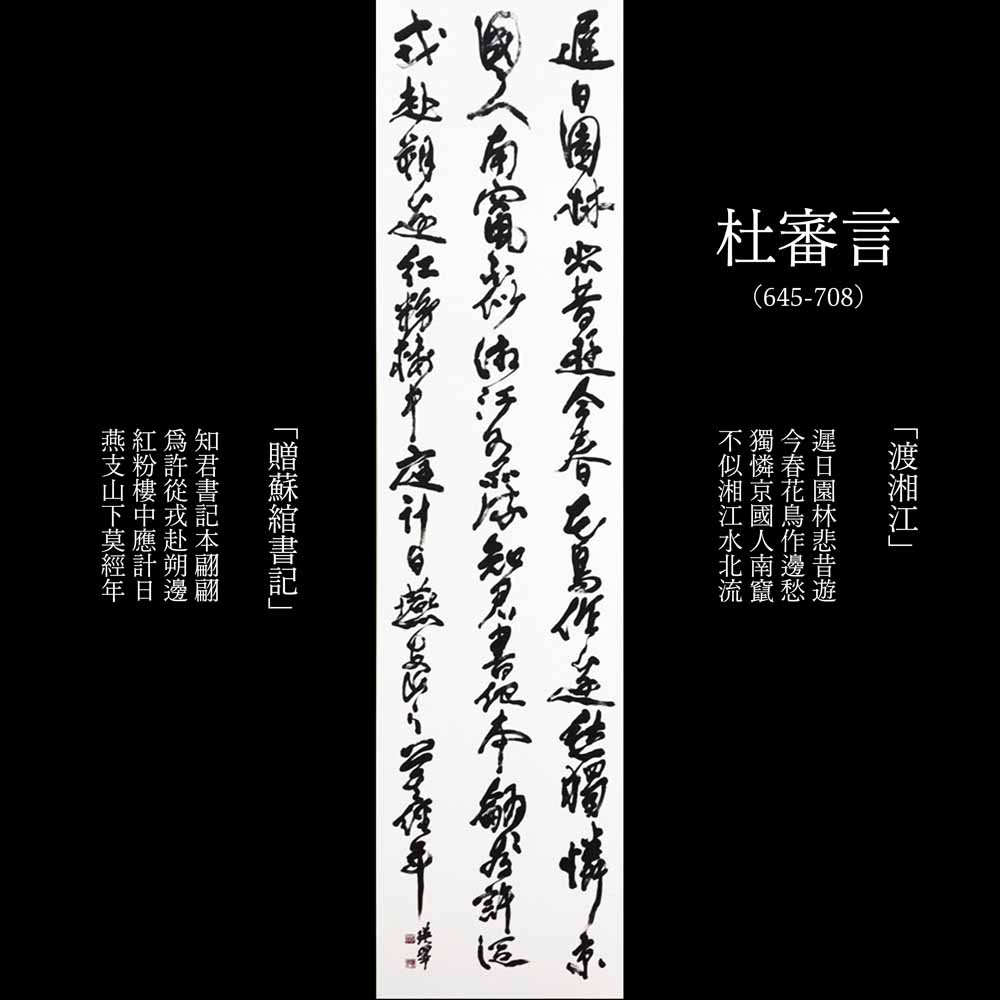 杜審言
（645-708）
「渡湘江」
遲日園林悲昔遊
今春花鳥作邊愁
獨憐京國人南竄
不似湘江水北流
遲日園林悲昔遊今春花鳥作邊愁獨憐京
國人南竄不似湘江水北流知君書記本翩翩為許從
戎赴朔邊紅粉樓中應計日燕支山下莫經年
「贈蘇綰書記」
知君書記本翩翩
爲許從戎赴朔邊
紅粉樓中應計日
燕支山下莫經年